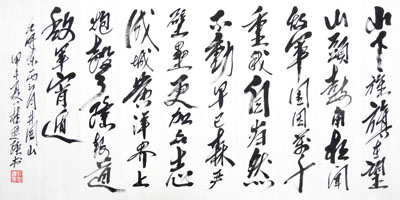 山下旌旗在望
山头鼓角相闻
敌军围困万千
重我自岿然
不動早已森严
壁垒更加众志
成城黄洋界上
炮聲隆報道
敵軍宵遁
毛泽东西江月井冈山
甲午夏 书